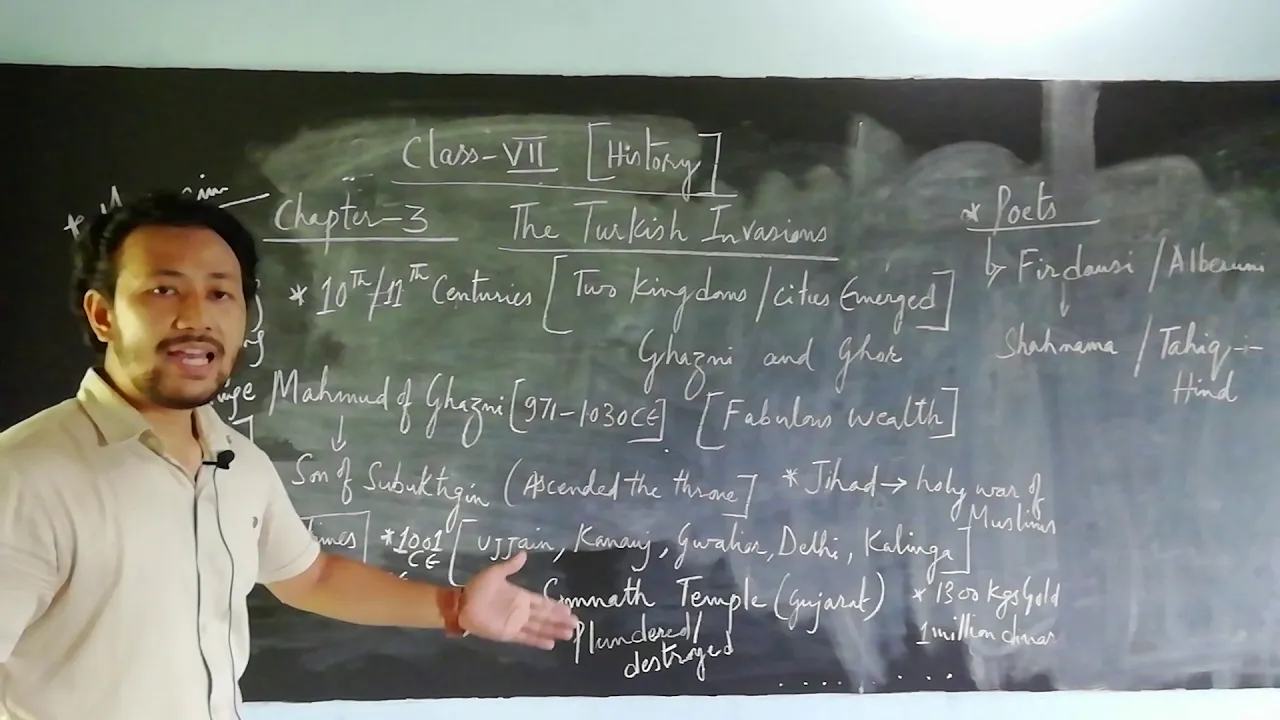 Class-VII [History]
Chapter-3 The Turkish Invasions
* 10TH/11TH Centuries [Two Kingdoms/cities Emerged]
Ghazni and Ghor
Mahmud of Ghazni [971-1030CE] [Fabulous wealth]
↓
Son of Subuktgin (Ascended the throne]
* Jihad → holy war of
Muslims
*1001 CE [Ujjain, Kanauj, Gwalior, Delhi, Kalinga]
Somnath Temple (Gujarat)
Plundered/
destroyed
* 1300 Kgs Gold
1 million dinar
* Poets
↳ Firdausi / Alberuni
↓
Shahnama / Tahiq-i-
Hind